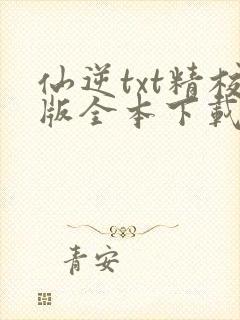 仙逆txt精校
版全本下载
青安